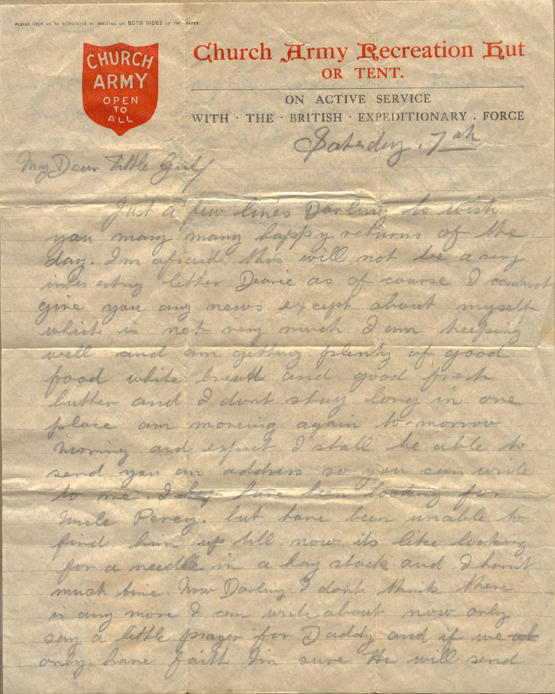 PLEASE HELP US TO ECONOMISE BY WRITING ON BOTH SIDES OF THE PAPER.
CHURCH
ARMY
OPEN
TO
ALL
Church Army Recreation Hut
OR TENT.
ON ACTIVE SERVICE
WITH · THE · BRITISH · EXPEDITIONARY · FORCE
Saturday. 7th
My Dear Little Girl
Just a few lines Darling to wish
you many many happy returns of the
day. I'm afraid this will not be a very
interesting letter Dearie as of course I cannot
give you any news except about myself
which is not very much I am keeping
well and am getting plenty of good
food white bread and good fresh
butter and I dont stay long in one
place am moveing again to-morrow
morning and expect I shall be able to
send you an address so you can write
to me. I have been looking for
Uncle Percy. but have been unable to
find him up till now its like looking
for a needle in a hay stack and I havn't
much time. Now Darling I dont think there
is any more I can write about now only
say a little prayer for Daddy and if we
only have faith I'm sure He will send